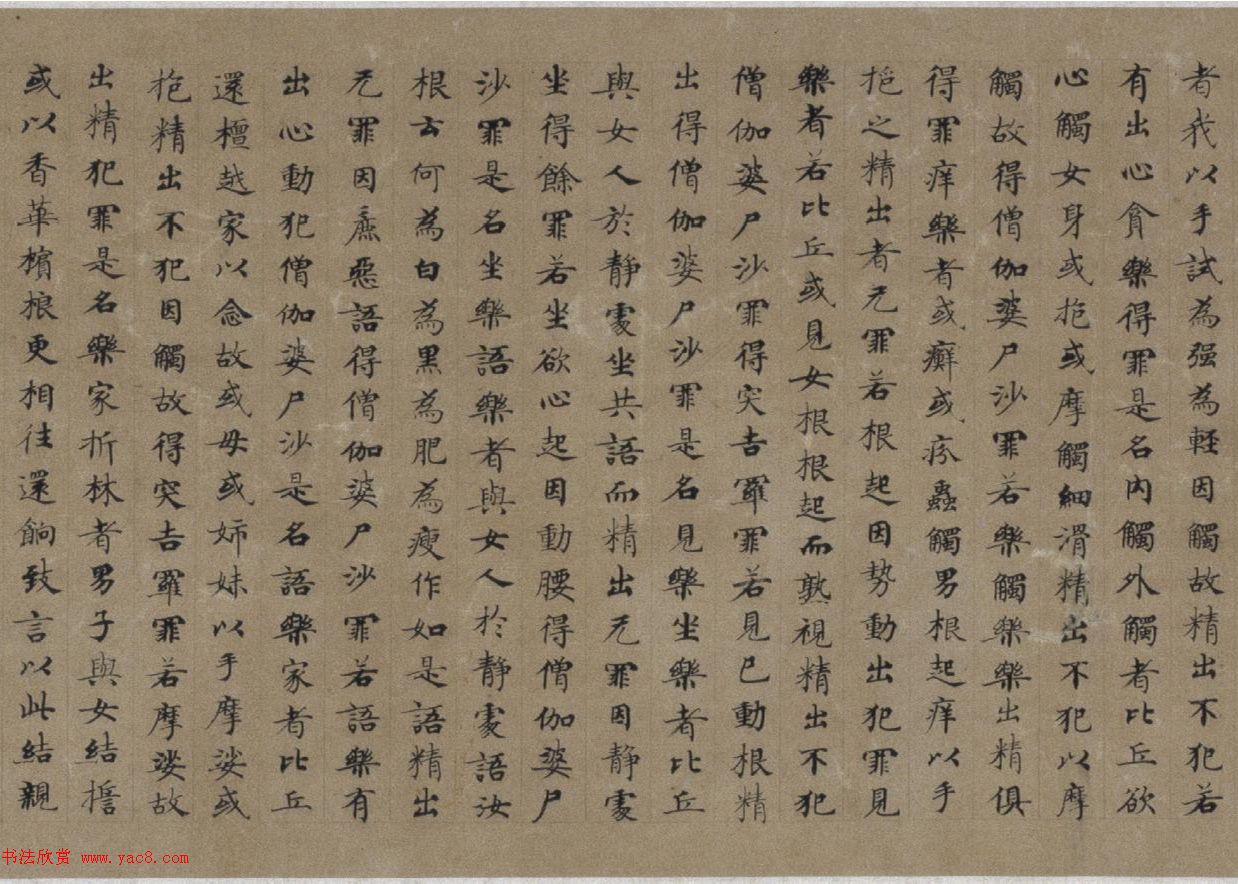 者我以手試為强為輕因觸故精出不犯若
有出心貪樂得罪是名內觸外觸者比丘欲
心觸女身或抱或摩觸細滑精出不犯以摩
觸故得僧伽婆尸沙罪若樂觸樂樂出精俱
得罪痒樂者或癬或疥蟲觸男根起痒以手
抱之精出者无罪若根起因勢動出犯罪見
樂者若比丘或見女根根起而熟視精出不犯
僧伽婆尸沙罪得突吉羅罪若見已動根精
出得僧伽婆尸沙罪是名見樂坐樂者比丘
與女人於靜處坐共語而精出无罪因靜處
坐得餘罪若坐欲心起因動腰得僧伽婆尸
沙罪是名坐樂語樂者與女人於靜處語汝
根云何為白為黑為肥為瘦作如是語精出
无罪因麁惡語得僧伽婆尸沙罪若語樂有
出心動犯僧伽婆尸沙是名語樂家者比丘
還檀越家以念故或母或姊妹以手摩娑或
抱精出不犯因觸故得突吉羅罪若摩娑故
出精犯罪是名樂家折林者男子與女結誓
或以香華檳榔更相往還餉致言以此結親
书法欣赏 www.yac8.com